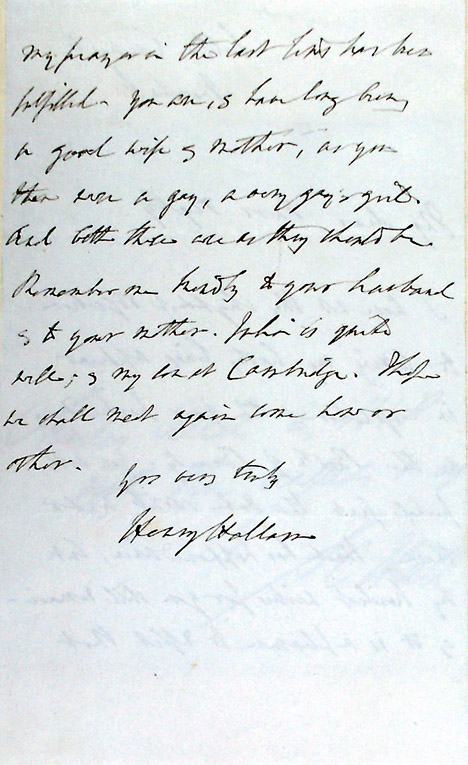 my prayer in the last lines has been
fulfilled - you are, & have long been,
a good wife & mother, as you
then were a gay, a very gay girl.
And both these are as they should be.
Remember me kindly to your husband
& to your mother. Julia is quite
well; & my son at Cambridge. I hope
we shall meet again some how or
other.
Yrs very truly
Henry Hallam